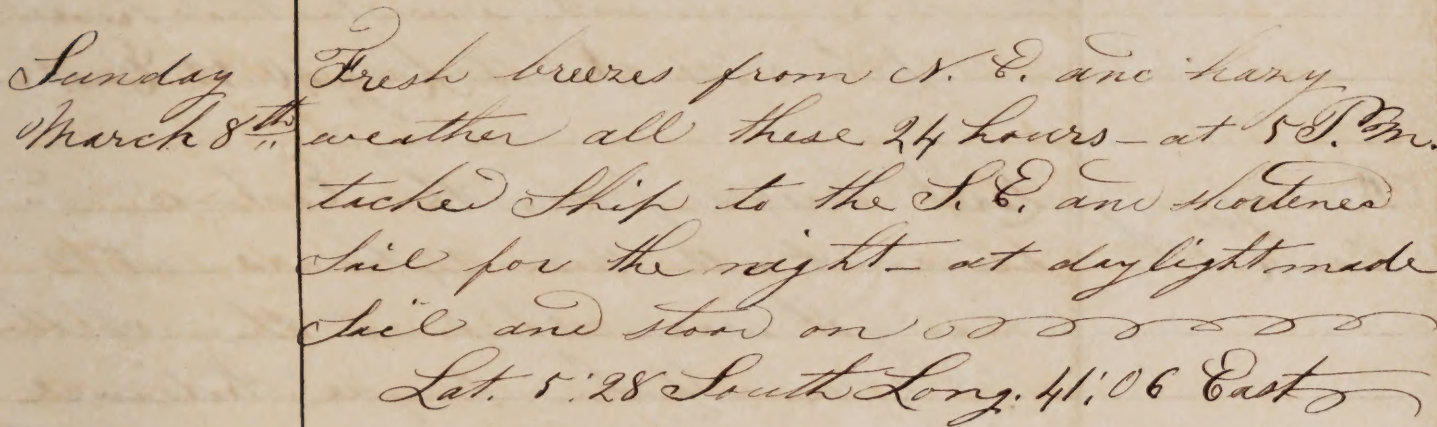 Sunday
March 8th
Fresh breezes from N. E. and hazy
weather all these 24 hours - at 5 P.M.
tacked Ship to the S. E. and shortened
Sail for the night - at daylight made
Sail and stood on
Lat. 5:28 South Long. 41:06 East